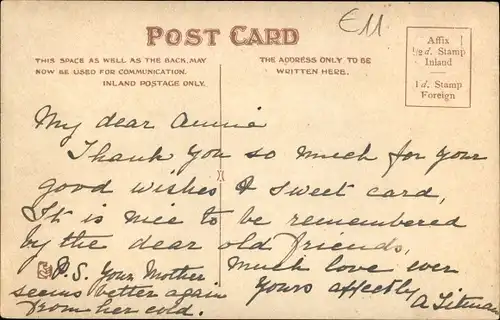 POST CARD
E11
THIS SPACE AS WELL AS THE BACK, MAY
NOW BE USED FOR COMMUNICATION.
INLAND POSTAGE ONLY.
THE ADDRESS ONLY TO BE
WRITTEN HERE.
Affix
½d. Stamp
Inland
1d. Stamp
Foreign
My dear Annie
Thank you so much for your
good wishes & sweet card,
It is nice to be remembered
by the dear old friends,
Much love ever
Yours affectly
A
P.S. Your Mother
seems better again
from her cold.